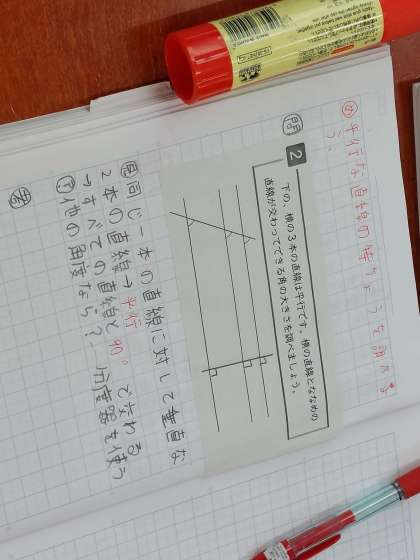 め 平行な直線の特ちょうを調べよう。
問
2
下の、横の3本の直線は平行です。横の直線とななめの
直線が交わってできる角の大きさを調べましょう。
見 同じ一本の直線に対して垂直な
2本の直線→平行
→すべての直線と90°で交わる
他の角度なら？ 分度器を使う